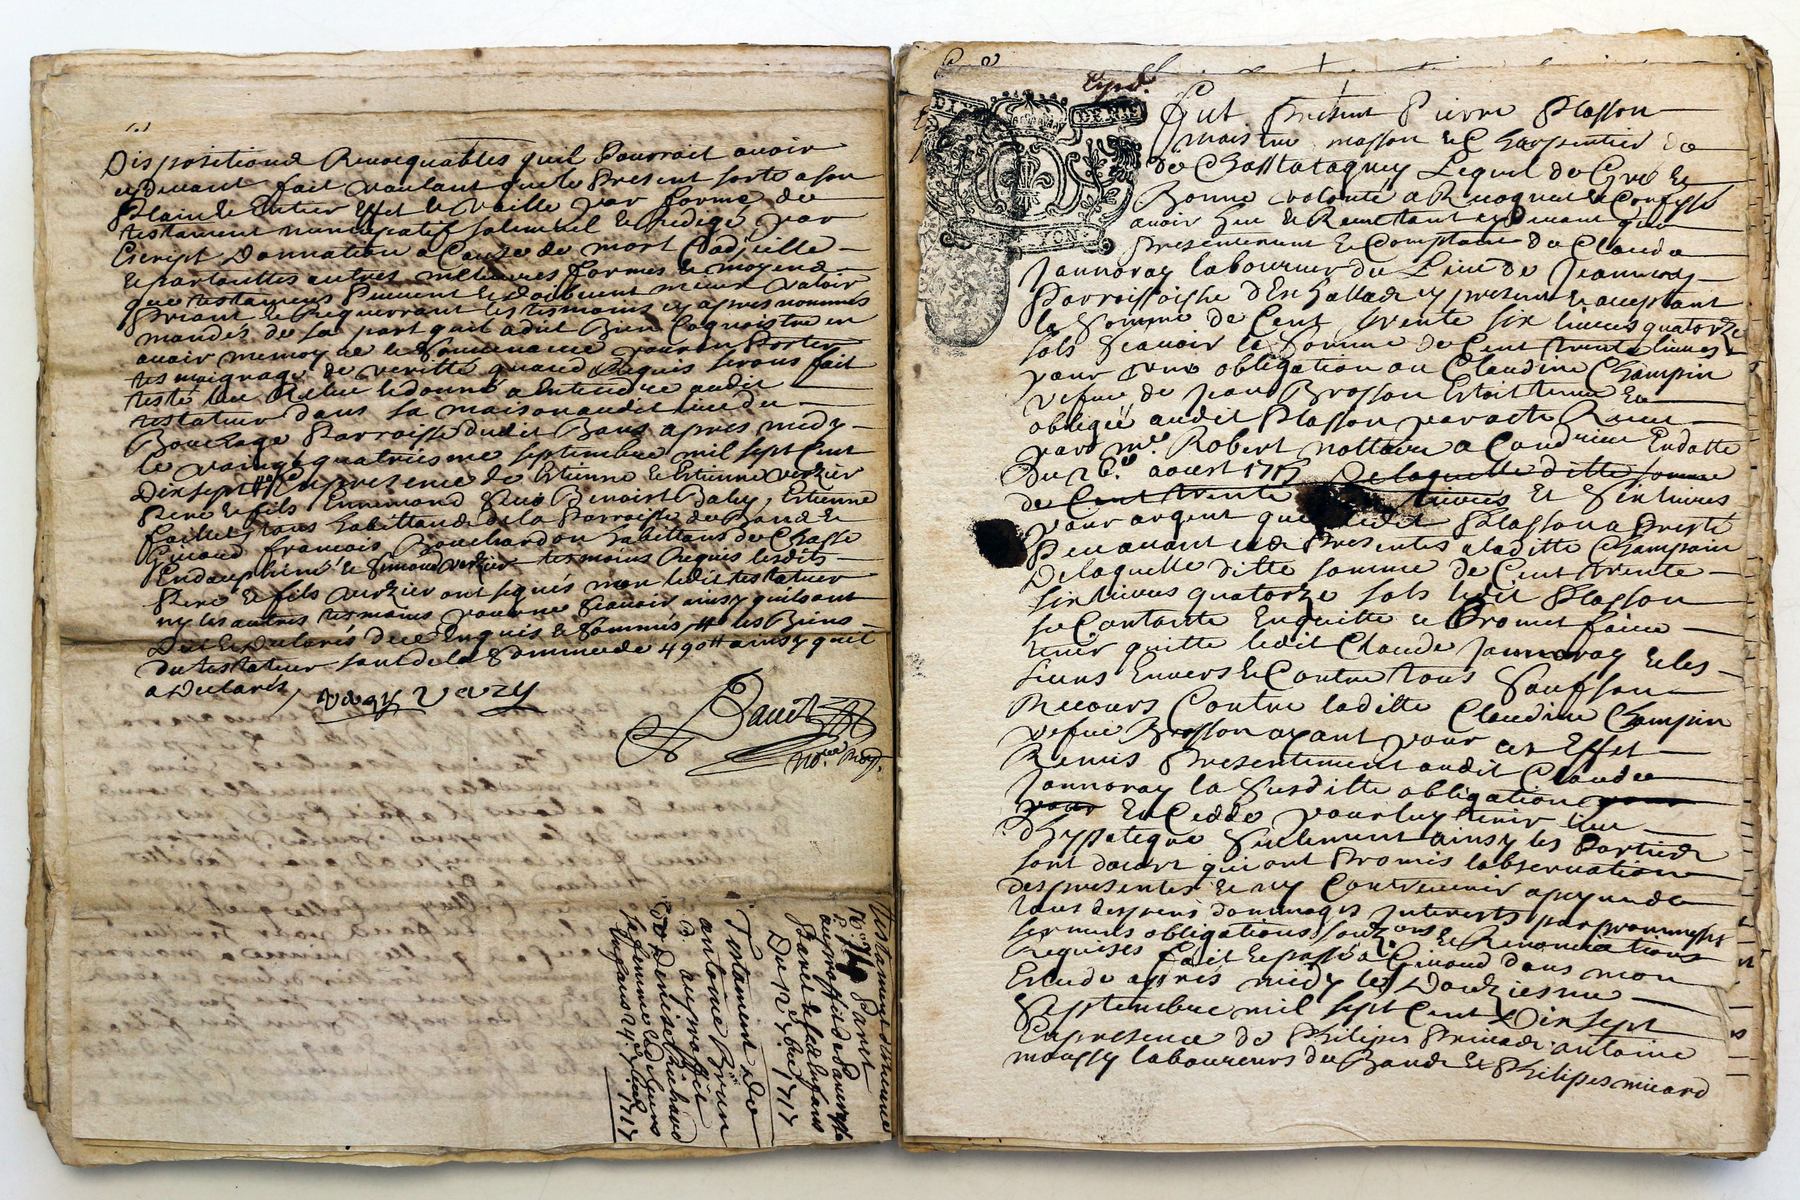 Dispositions Revocquables quil Pourroit avoir
cydevant fait voulant que le Present sorte a son
Plain & Entier Effet & vaille par forme de
testament nuncupatif solemnel & Redigé par
Escript Donnation a Cause de mort Codicille
& partouttes autres meilleures formes & moyens
que testaments Peuvent & doibvent mieux valoir
Priant & Requerrant les tesmoins cy apres nommes
mandés de sa part quil a dit Bien Cognoistre en
avoir memoire & souvenance pour en Porter
tesmoignage de veritté quand Requis seront fait
testé leu Releu & donné a Entendre audit
testateur dans sa maison audit lieu du
Bouchage Parroisse dudit Bans apres midy
le vaingt quatriesme septembre mil sept Cent
Dix sept En presence de Estienne & Estienne verzier
Pere & fils Ennemond Benoist Baley, Estienne
tous habittans de la Parroisse de Bans &
Givord francois Bouchardon habittans de Chasse
En dauphiné & Simond verzier tesmoins Requis lesdits
Pere & fils verzier ont signés non ledit testateur
ny les autres tesmoins pour ne scavoir ainsy quils ont
Dit & Declarés de ce Enquis & sommés les Biens
du testateur sont de la somme de 490 ainsy quil
a Declaré,
no.re Roy.
testament destienne
auproffit de
Barel & ses Enfans
Du 12 7bre 1717
Testament de
antoine Brun
au proffit
de Denise Richard
sa femme & de leurs
Enfans 24 7bre 1717
Exped.
DIX DENIE
LYON
Fut Present Pierre Plasson
maistre masson & Charpentier de
Lequel de Gré &
Bonne volonté a Recognu & Confessé
avoir heu & Reeu tant cy Devant que
Presentement & Comptant de Claude
Jannoray laboureur du Lieu de Jeannoray
Parroisse cy present & acceptant
la somme de Cent trente six livres quatorze
sols scavoir la somme de Cent trente livres
pour une obligation ou Claudine Champin
vefue de Jean Brosson Estoit tenue &
obligée audit Plasson par acte Receu
par me. Robert nottaire a Condrieu En datte
Du 26e aoust 1715 De laquelle ditte somme
de Cent trente livres Et six livres
pour argent que ledit Plasson a Presté
Peu avant ces Presentes a laditte Champin
De laquelle ditte somme de Cent trente
six livres quatorze sols ledit Plasson
se Contante Enquitte & Promet faire
tenir quitte ledit Claude Jannoray & les
siens Envers & Contre tous sauf son
Recours Contre laditte Claudine Champin
vefue Brosson ayant pour cet Effet
Remis Presentement audit Claude
Jannoray la susditte obligation pour
pour En Cedde pour luy tenir lieu
dhyppoteque seulement ainsy les Parties
sont dacort qui ont Promis lobservation
des presentes & ny Contrevenir a peyne de
tous despens dommages Interests par promesses
serments obligations soubz.ons & Renonciations
Requises fait & passé a Givord dans mon
Estude apres midy le Douziesme
Septembre mil sept Cent Dix sept
En presence de Philipes Privad antoine
moussy laboureurs de Bans & Philipes micard